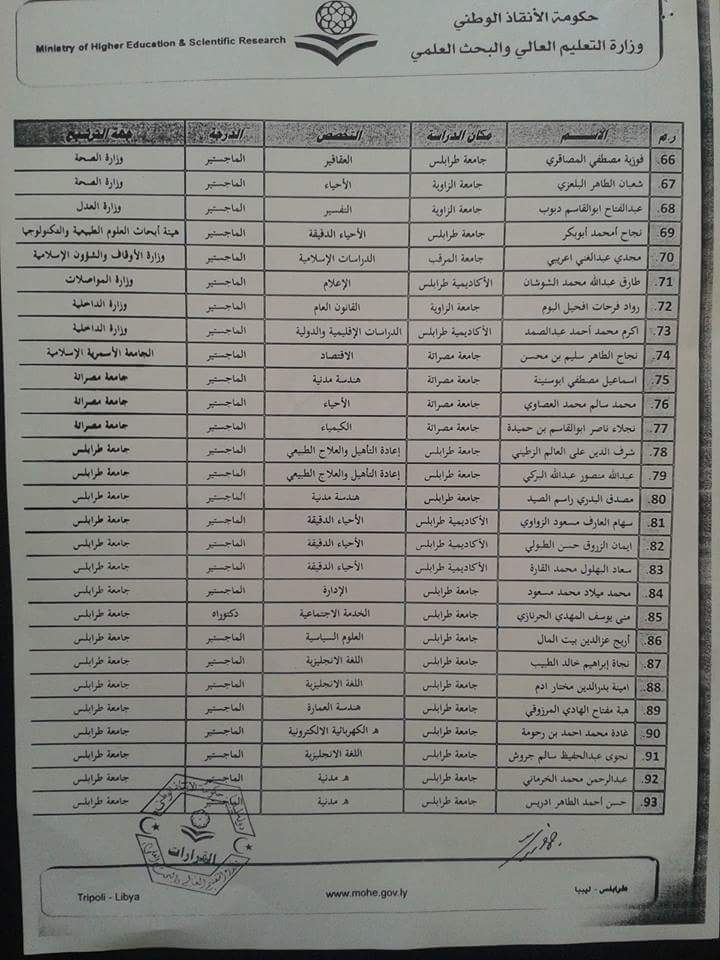 حكومة الأنقاذ الوطني
وزارة التعليم العالي والبحث العلمي
Ministry of Higher Education & Scientific Research
ر.م الاســـم مكان الدراسة التخصص الدرجة جهة الترشيح
66. فوزية مصطفي المصاقري جامعة طرابلس العقاقير الماجستير وزارة الصحة
67. شعبان الطاهر البلعزي جامعة الزاوية الأحياء الماجستير وزارة الصحة
68. عبدالفتاح ابوالقاسم دبوب جامعة الزاوية التفسير الماجستير وزارة العدل
69. نجاح أمحمد أبوبكر جامعة طرابلس الأحياء الدقيقة الماجستير هيئة أبحاث العلوم الطبيعية والتكنولوجيا
70. مجدي عبدالغني اعريبي جامعة المرقب الدراسات الإسلامية الماجستير وزارة الأوقاف والشؤون الإسلامية
71. طارق عبدالله محمد الشوشان الأكاديمية طرابلس الإعلام الماجستير وزارة المواصلات
72. رواد فرحات افحيل البوم جامعة الزاوية القانون العام الماجستير وزارة الداخلية
73. اكرم محمد أحمد عبدالصمد الأكاديمية طرابلس الدراسات الإقليمية والدولية الماجستير وزارة الداخلية
74. نجاح الطاهر سليم بن محسن جامعة مصراتة الاقتصاد الماجستير الجامعة الأسمرية الإسلامية
75. اسماعيل مصطفي ابوسنينة جامعة مصراتة هندسة مدنية الماجستير جامعة مصراتة
76. محمد سالم محمد العصاوي جامعة مصراتة الأحياء الماجستير جامعة مصراتة
77. نجلاء ناصر ابوالقاسم بن حميدة جامعة مصراتة الكيمياء الماجستير جامعة مصراتة
78. شرف الدين على العالم الزطيني جامعة طرابلس إعادة التأهيل والعلاج الطبيعي الماجستير جامعة طرابلس
79. عبدالله منصور عبدالله البركي جامعة طرابلس إعادة التأهيل والعلاج الطبيعي الماجستير جامعة طرابلس
80. مصدق البدري راسم الصيد جامعة طرابلس هندسة مدنية الماجستير جامعة طرابلس
81. سهام العارف مسعود الزواوي الأكاديمية طرابلس الأحياء الدقيقة الماجستير جامعة طرابلس
82. ايمان الزروق حسن الطبولي الأكاديمية طرابلس الأحياء الدقيقة الماجستير جامعة طرابلس
83. سعاد البهلول محمد القارة الأكاديمية طرابلس الأحياء الدقيقة الماجستير جامعة طرابلس
84. محمد ميلاد محمد مسعود جامعة طرابلس الإدارة الماجستير جامعة طرابلس
85. منى يوسف المهدي الجرنازي جامعة طرابلس الخدمة الاجتماعية دكتوراه جامعة طرابلس
86. أريج عزالدين بيت المال جامعة طرابلس العلوم السياسية الماجستير جامعة طرابلس
87. نجاة إبراهيم خالد الطبيب جامعة طرابلس اللغة الانجليزية الماجستير جامعة طرابلس
88. امينة بدرالدين مختار ادم جامعة طرابلس اللغة الانجليزية الماجستير جامعة طرابلس
89. هبة مفتاح الهادي المرزوقي جامعة طرابلس هندسة العمارة الماجستير جامعة طرابلس
90. غادة محمد احمد بن رحومة جامعة طرابلس هـ الكهربائية الالكترونية الماجستير جامعة طرابلس
91. نجوى عبدالحفيظ سالم جروش جامعة طرابلس اللغة الانجليزية الماجستير جامعة طرابلس
92. عبدالرحمن محمد الخرماني جامعة طرابلس هـ مدنية الماجستير جامعة طرابلس
93. حسن أحمد الطاهر ادريس جامعة طرابلس هـ مدنية الماجستير جامعة طرابلس
القرارات
طرابلس - ليبيا
www.mohe.gov.ly
Tripoli - Libya